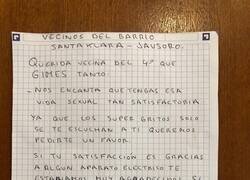 VECINOS DEL BARRIO
SANTAKLARA - JAUSORO.
QUERIDA VECINA DEL 4º QUE
GIMES TANTO.
- NOS ENCANTA QUE TENGAS ESA
VIDA SEXUAL TAN SATISFACTORIA
YA QUE LOS SUPER GRITOS SOLO
SE TE ESCUCHAN A TI QUEREMOS
PEDIRTE UN FAVOR.
SI TU SATISFACCIÓN ES GRACIAS
A ALGUN APARATO ELECTRICO TE
ESTARIAMOS MUY AGRADECIDOS SI